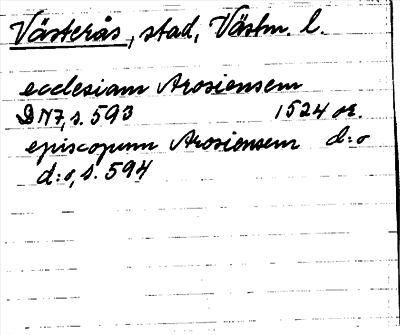 Västerås, stad, Västm. l.
ecclesiam Arosiensem
DN7, s. 593 1524 or.
episcopum Arosiensem d:o
d:o, s. 594